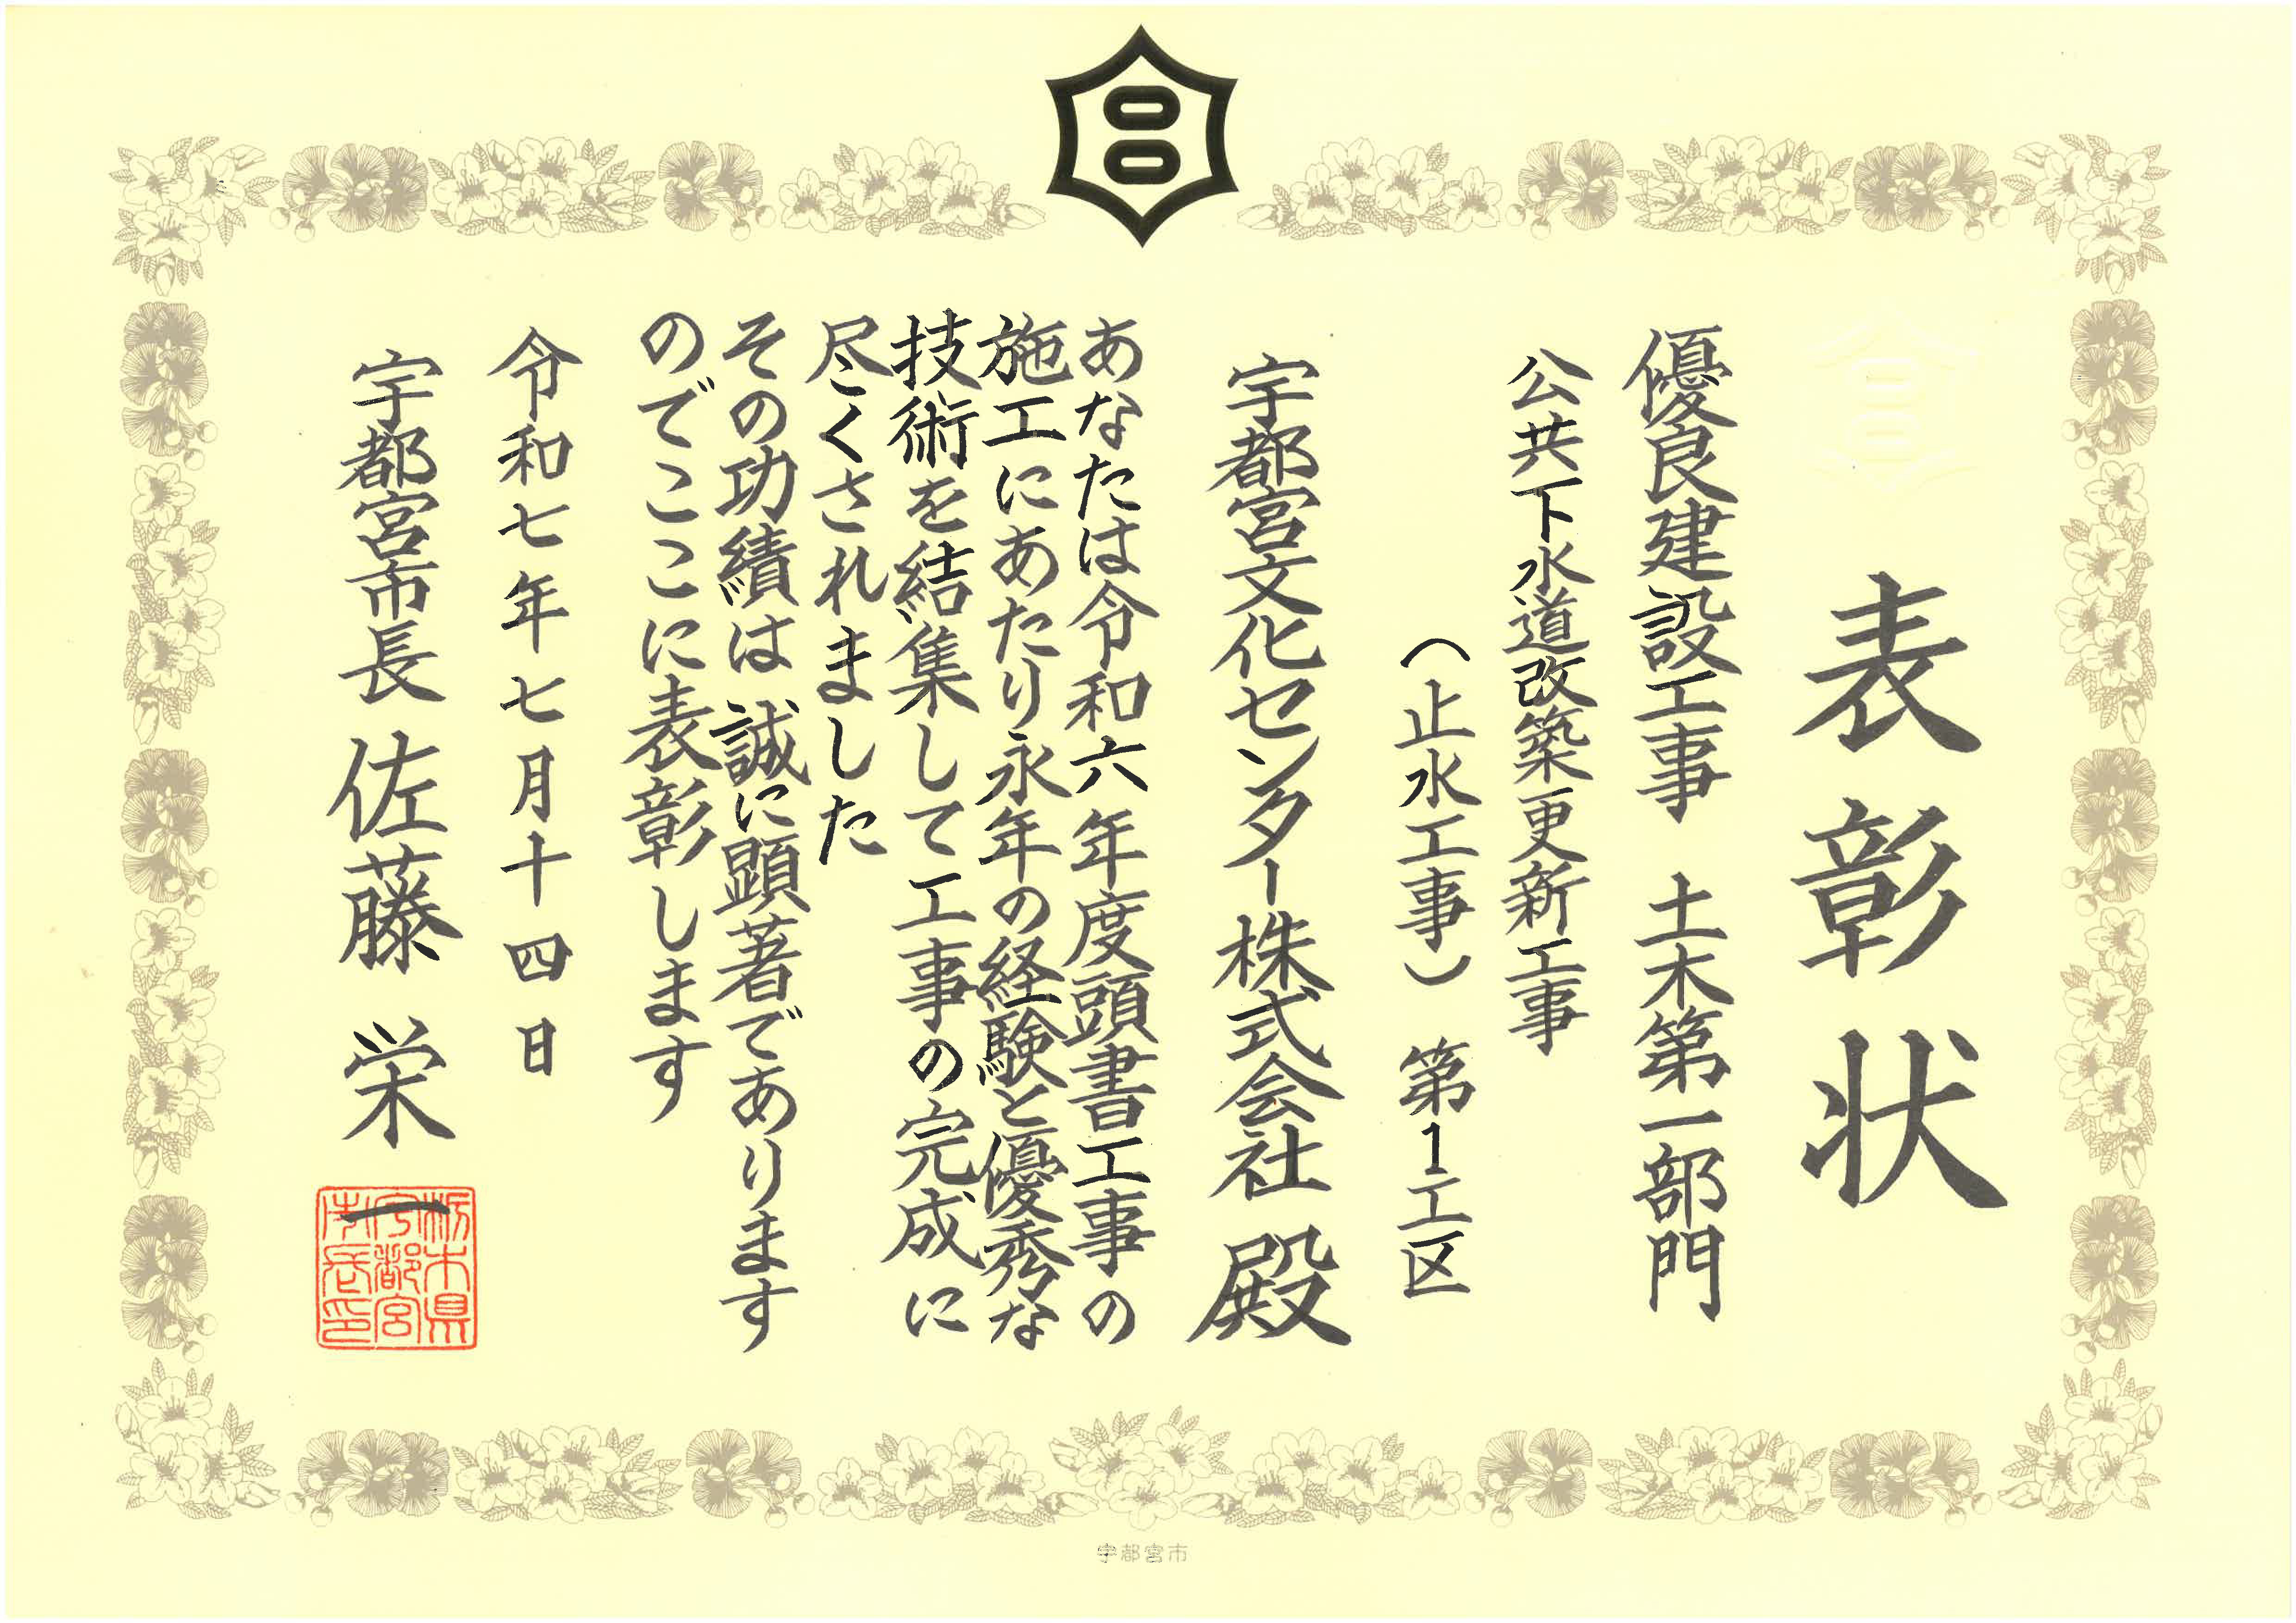 表彰状
優良建設工事 土木第一部門
公共下水道改築更新工事
(止水工事) 第1工区
宇都宮文化センター株式会社 殿
あなたは令和六年度頭書工事の
施工にあたり永年の経験と優秀な
技術を結集して工事の完成に
尽くされました
その功績は誠に顕著であります
のでここに表彰します
令和七年七月十四日
宇都宮市長 佐藤栄一
栃木県
宇都宮
市長印
宇都宮市